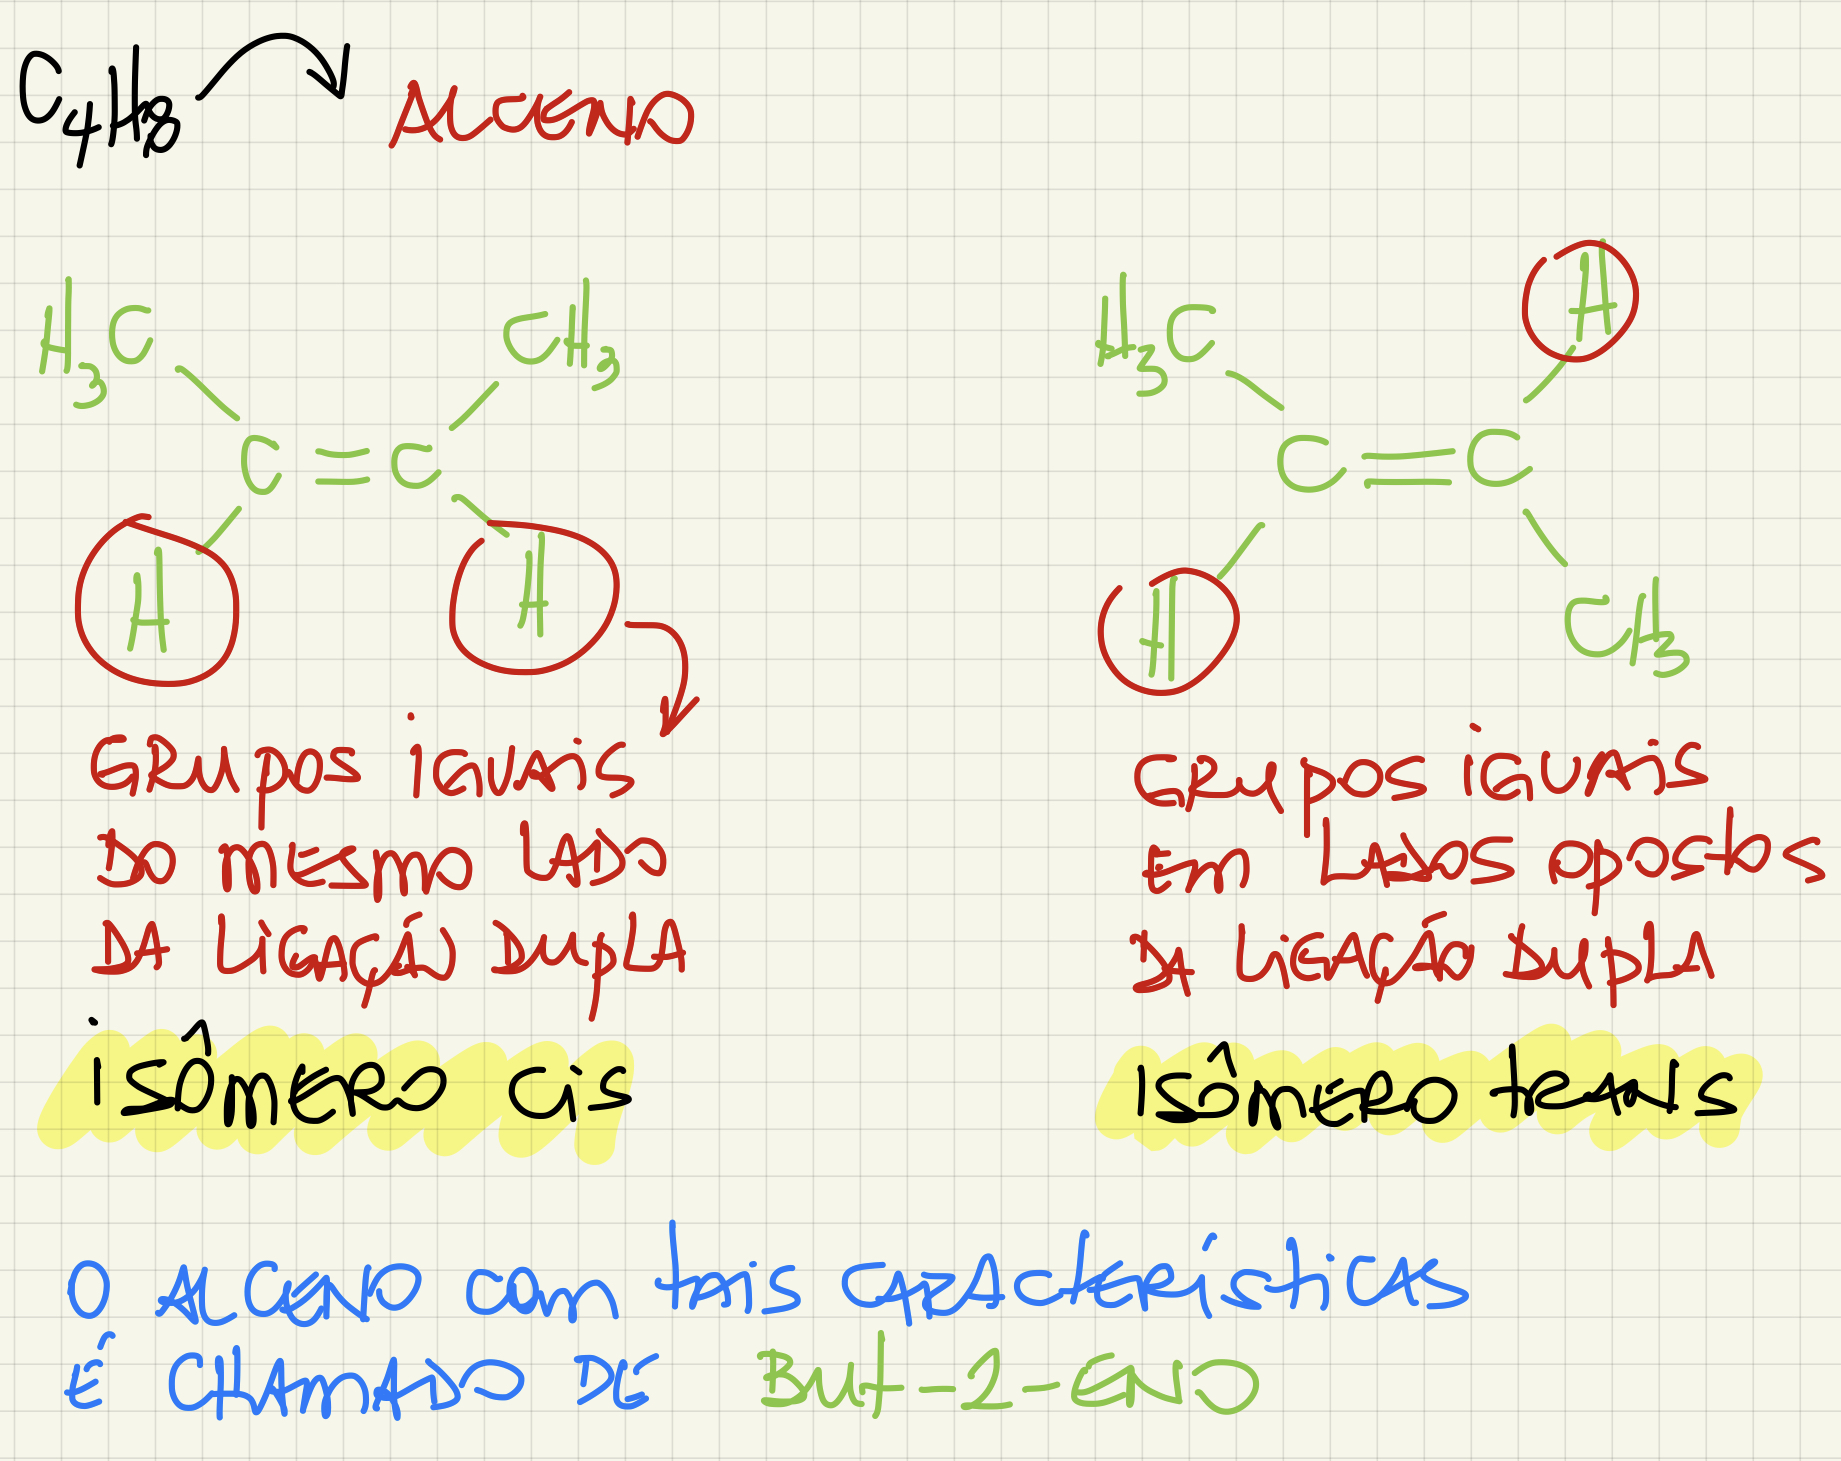 C4H8 ALCENO
H3C CH3
C = C
H H
H3C H
C = C
H CH3
GRUPOS IGUAIS
DO MESMO LADO
DA LIGAÇÃO DUPLA
ISÔMERO CIS
GRUPOS IGUAIS
EM LADOS OPOSTOS
DA LIGAÇÃO DUPLA
ISÔMERO trans
O ALCENO com tais CARACterísticAS
É CHAMADO DE But-2-ENO